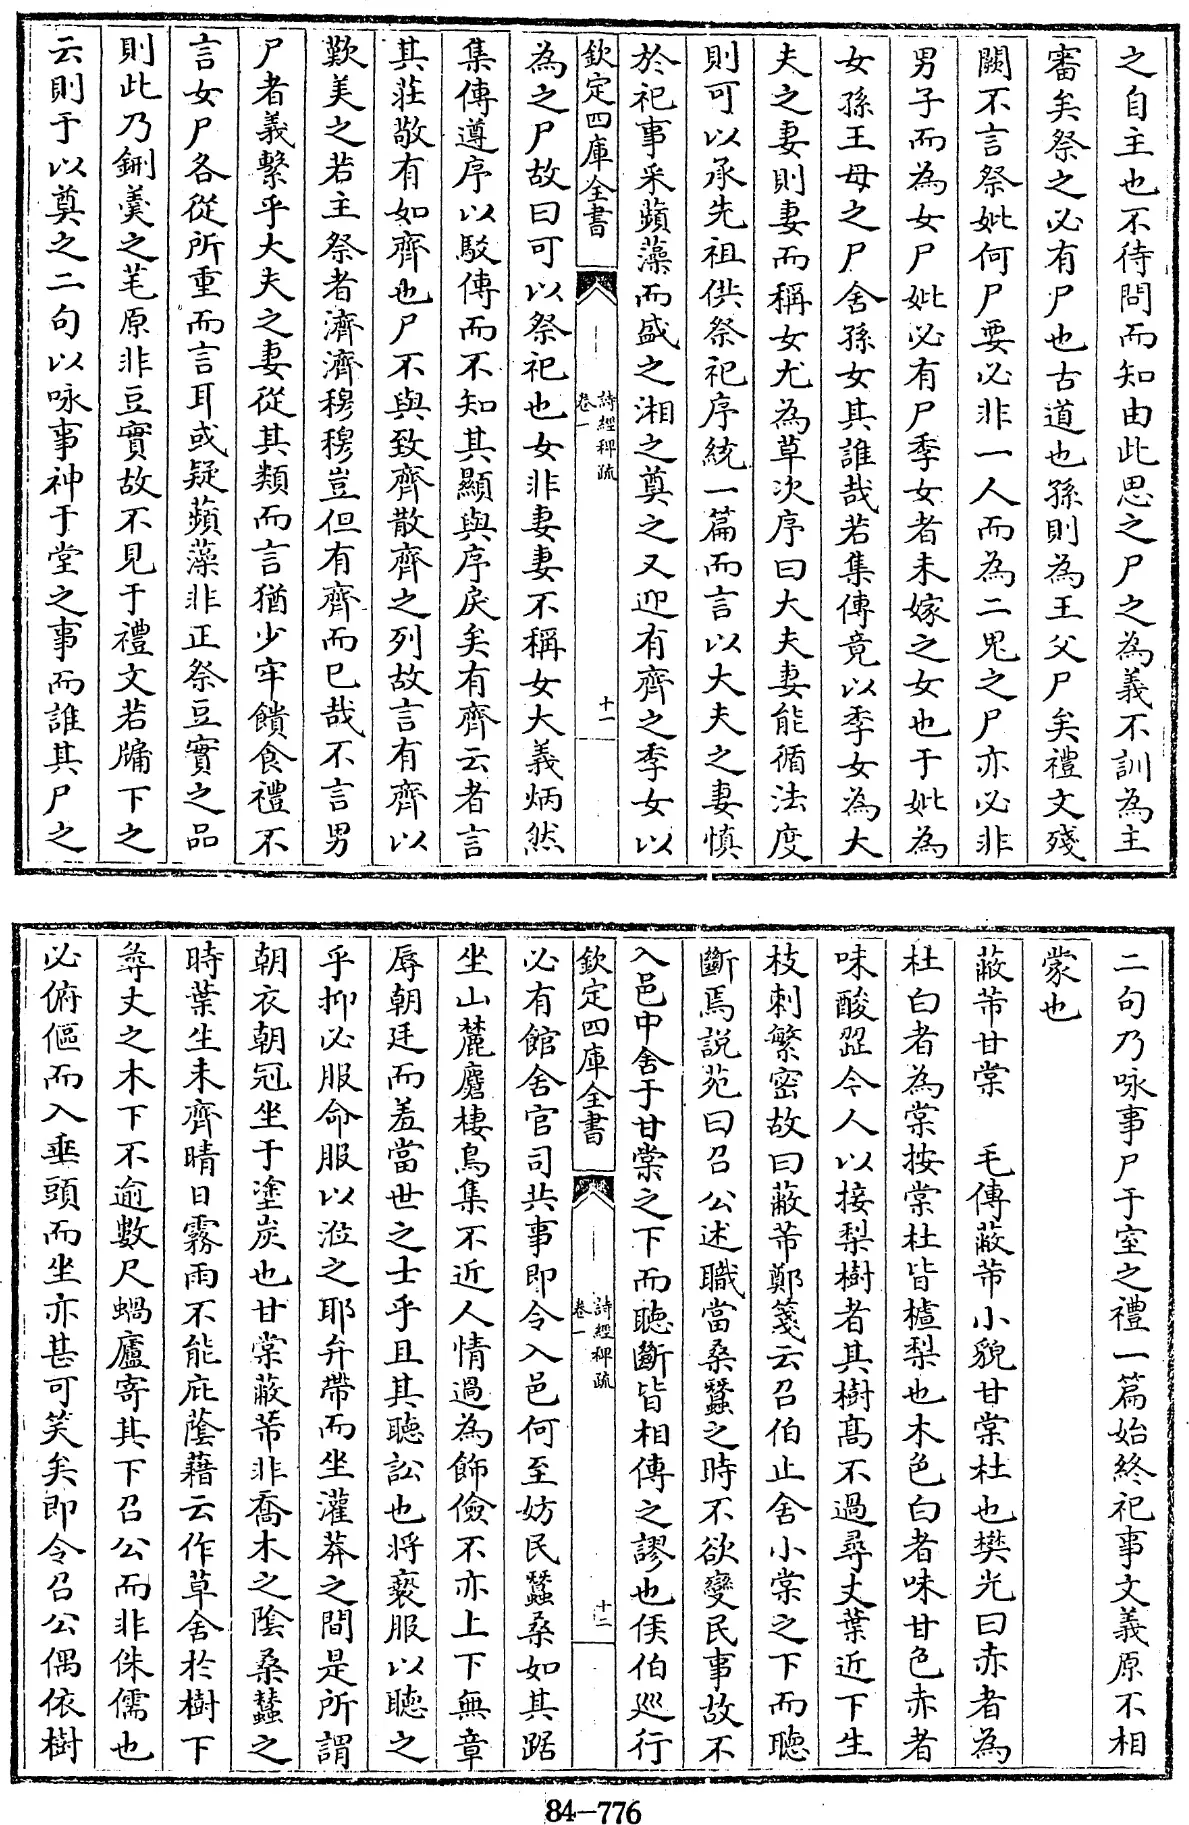 之自主也不待問而知由此思之尸之為義不訓為主
審矣祭之必有尸也古道也孫則為王父尸矣禮文殘
闕不言祭妣何尸要必非一人而為二鬼之尸亦必非
男子而為女尸妣必有尸季女者未嫁之女也于妣為
女孫王母之尸舍孫女其誰哉若集傳竟以季女為大
夫之妻則妻而稱女尤為草次序曰大夫妻能循法度
則可以承先祖供祭祀序統一篇而言以大夫之妻慎
於祀事采蘋藻而盛之湘之奠之又迎有齊之季女以
欽定四庫全書
詩經稗疏
卷一
十一
為之尸故曰可以祭祀也女非妻妻不稱女大義炳然
集傳遵序以駁傳而不知其顯與序戾矣有齊云者言
其莊敬有如齊也尸不與致齊散齊之列故言有齊以
歎美之若主祭者濟濟穆穆豈但有齊而已哉不言男
尸者義繫乎大夫之妻從其類而言猶少牢饋食禮不
言女尸各從所重而言耳或疑蘋藻非正祭豆實之品
則此乃鉶羹之芼原非豆實故不見于禮文若牗下之
云則于以奠之二句以咏事神于堂之事而誰其尸之
二句乃咏事尸于室之禮一篇始終祀事文義原不相
蒙也
蔽芾甘棠 毛傳蔽芾小貌甘棠杜也樊光曰赤者為
杜白者為棠按棠杜皆樝梨也木色白者味甘色赤者
味酸澀今人以接梨樹者其樹高不過尋丈葉近下生
枝刺繁密故曰蔽芾鄭箋云召伯止舍小棠之下而聽
斷焉説苑曰召公述職當桑蠶之時不欲變民事故不
入邑中舍于甘棠之下而聽斷皆相傳之謬也侯伯巡行
欽定四庫全書
詩經稗疏
卷一
十二
必有館舍官司共事即令入邑何至妨民蠶桑如其踞
坐山麓麏棲鳥集不近人情過為飾儉不亦上下無章
辱朝廷而羞當世之士乎且其聽訟也將褻服以聽之
乎抑必服命服以涖之耶弁帶而坐灌莽之間是所謂
朝衣朝冠坐于塗炭也甘棠蔽芾非喬木之陰桑蠶之
時葉生未齊晴日霧雨不能庇蔭藉云作草舍於樹下
尋丈之木下不逾數尺蝸廬寄其下召公而非侏儒也
必俯傴而入垂頭而坐亦甚可笑矣即令召公偶依樹
84-776